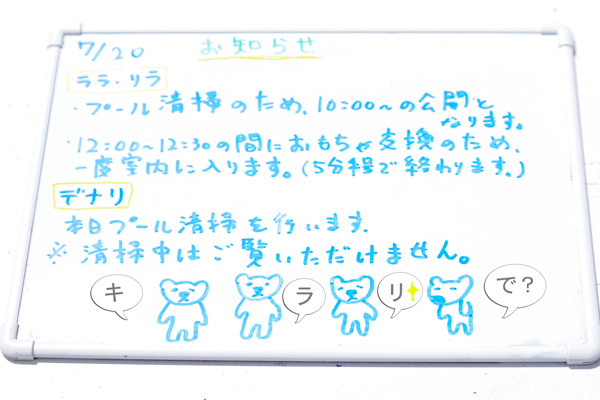 7/20
お知らせ
ララ・リラ
・プール清掃のため、10:00〜の公開と
なります。
・12:00〜12:30の間におもちゃ交換のため、
一度室内に入ります。(5分程で終わります。)
デナリ
本日プール清掃を行います
※清掃中はご覧いただけません。
キ
ラ
リ
で?